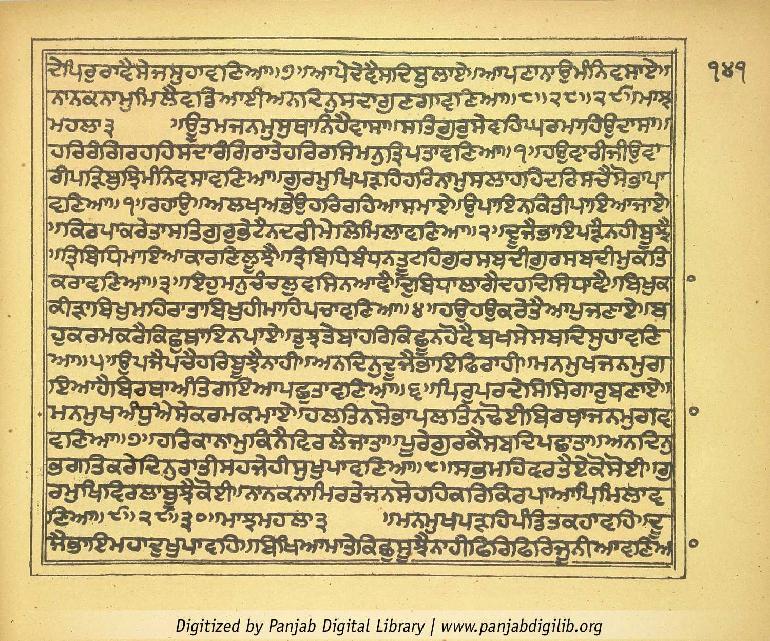 ੧੪੧
ਦੇਪਿਰੁਰਾਵੈਸੇਜਸੁਹਾਵਣਿਆ॥੭॥ਆਪੇਦੇਵੈਸਦਿਬੁਲਾਏ॥ਆਪਣਾਨਾਉਮੰਨਿਵਸਾਏ॥
ਨਾਨਕਨਾਮੁਮਿਲੈਵਡਿਆਈਅਨਦਿਨੁਸਦਾਗੁਣਗਾਵਣਿਆ॥੮॥੨੮॥੨੯॥ਮਾਝ
ਮਹਲਾ੩ ॥ਊਤਮਜਨਮੁਸੁਥਾਨਿਹੈਵਾਸਾ॥ਸਤਿਗੁਰੁਸੇਵਹਿਘਰਮਾਹਿਉਦਾਸਾ॥
ਹਰਿਰੰਗਿਰਹਹਿਸਦਾਰੰਗਿਰਾਤੇਹਰਿਰਸਿਮਨੁਤ੍ਰਿਪਤਾਵਣਿਆ॥੧॥ਹਉਵਾਰੀਜੀਉਵਾ
ਰੀਪੜਿਬੁਝਿਮੰਨਿਵਸਾਵਣਿਆ॥ਗੁਰਮੁਖਿਪੜਹਿਹਰਿਨਾਮੁਸਲਾਹਹਿਦਰਿਸਚੈਸੋਭਾਪਾ
ਵਣਿਆ॥੧॥ਰਹਾਉ॥ਅਲਖਅਭੇਉਹਰਿਰਹਿਆਸਮਾਏ॥ਉਪਾਇਨਕਿਤੀਪਾਇਆਜਾਏ
॥ਕਿਰਪਾਕਰੇਤਾਸਤਿਗੁਰੁਭੇਟੈਨਦਰੀਮੇਲਿਮਿਲਾਵਣਿਆ॥੨॥ਦੂਜੈਭਾਇਪੜੈਨਹੀਬੂਝੈ
॥ਤ੍ਰਿਬਿਧਿਮਾਇਆਕਾਰਣਿਲੂਝੈ॥ਤ੍ਰਿਬਿਧਿਬੰਧਨਤੂਟਹਿਗੁਰਸਬਦੀਗੁਰਸਬਦੀਮੁਕਤਿ
ਕਰਾਵਣਿਆ॥੩॥ਇਹੁਮਨੁਚੰਚਲੁਵਸਿਨਆਵੈ॥ਦੁਬਿਧਾਲਾਗੈਦਹਦਿਸਿਧਾਵੈ॥ਬਿਖੁਕਾ
ਕੀੜਾਬਿਖੁਮਹਿਰਾਤਾਬਿਖੁਹੀਮਾਹਿਪਚਾਵਣਿਆ॥੪॥ਹਉਹਉਕਰੇਤੈਆਪੁਜਣਾਏ॥ਬ
ਹੁਕਰਮਕਰੈਕਿਛੁਥਾਇਨਪਾਏ॥ਤੁਝਤੇਬਾਹਰਿਕਿਛੂਨਹੋਵੈਬਖਸੇਸਬਦਿਸੁਹਾਵਣਿ
ਆ॥੫॥ਉਪਜੈਪਚੈਹਰਿਬੂਝੈਨਾਹੀ॥ਅਨਦਿਨੁਦੂਜੈਭਾਇਫਿਰਾਹੀ॥ਮਨਮੁਖਜਨਮੁਗ
ਇਆਹੈਬਿਰਥਾਅੰਤਿਗਇਆਪਛੁਤਾਵਣਿਆ॥੬॥ਪਿਰੁਪਰਦੇਸਿਸਿਗਾਰੁਬਣਾਏ॥
ਮਨਮੁਖਅੰਧੁਐਸੇਕਰਮਕਮਾਏ॥ਹਲਤਿਨਸੋਭਾਪਲਤਿਨਢੋਈਬਿਰਥਾਜਨਮੁਗਵਾ
ਵਣਿਆ॥੭॥ਹਰਿਕਾਨਾਮੁਕਿਨੈਵਿਰਲੈਜਾਤਾ॥ਪੂਰੇਗੁਰਕੈਸਬਦਿਪਛਾਤਾ॥ਅਨਦਿਨੁ
ਭਗਤਿਕਰੇਦਿਨੁਰਾਤੀਸਹਜੇਹੀਸੁਖੁਪਾਵਣਿਆ॥੮॥ਸਭਮਹਿਵਰਤੈਏਕੋਸੋਈ॥ਗੁ
ਰਮੁਖਿਵਿਰਲਾਬੂਝੈਕੋਈ॥ਨਾਨਕਨਾਮਿਰਤੇਜਨਸੋਹਹਿਕਰਿਕਿਰਪਾਆਪਿਮਿਲਾਵ
ਣਿਆ॥੯॥੨੯॥੩੦॥ਮਾਝਮਹਲਾ੩ ॥ਮਨਮੁਖਪੜਹਿਪੰਡਿਤਕਹਾਵਹਿ॥ਦੂ
ਜੈਭਾਇਮਹਾਦੁਖੁਪਾਵਹਿ॥ਬਿਖਿਆਮਾਤੇਕਿਛੁਸੂਝੈਨਾਹੀਫਿਰਿਫਿਰਿਜੂਨੀਆਵਣਿਆ
Digitized by Panjab Digital Library | www.panjabdigilib.org